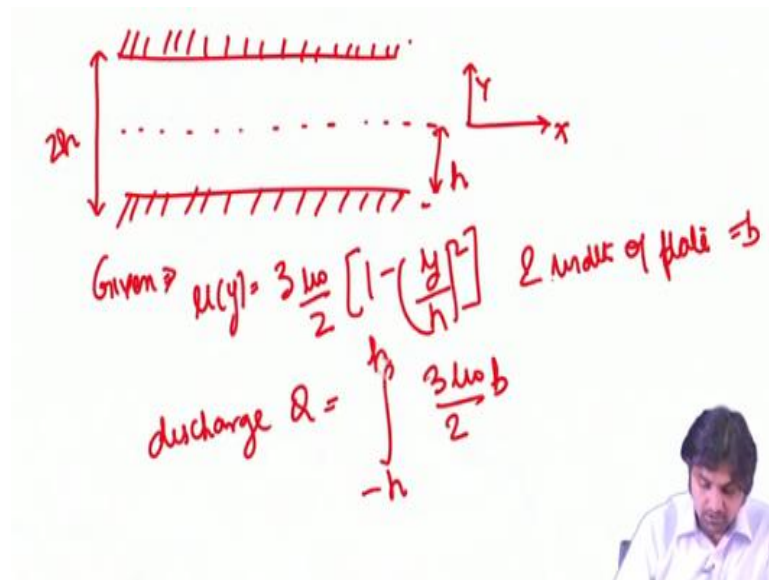 2h
Y
X
h
Given ⇒ u(y) = 3u₀/2 [1-(y/h)²] & width of plate = b
discharge Q = ∫₋ₕʰ 3u₀/2 b